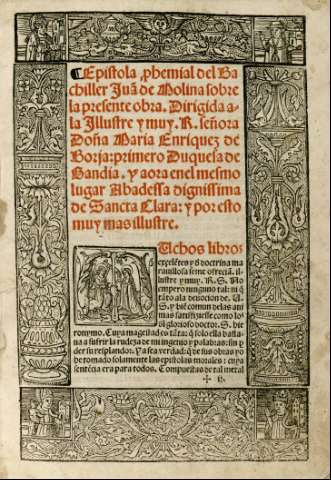 ¶Epistola ꝓhemial del Ba
chiller Juã de Molina sobre
la presente obra. Dirigida a
la Illustre y muy. R. señora
Doña Maria Enriquez de
Borja: primero Duquesa de
Gandia. y aora en el mesmo
lugar Abadessa dignissima
de Sancta Clara: y por esto
muy mas illustre.
Uchos libros
excelẽtes y d doctrina ma
rauillosa se me ofreciã.
illustre y muy. R. S. No
empero ninguno tal: ni q̃
tãto a la deuocion de. U.
S. y biẽ comun de las ani
mas satisfiziesse como los
ðl glorioso doctor. S. Hie
ronymo. Cuya magestad es tãta: q̃ solo ella basta
ua a sufrir la rudeza de mi ingenio y palabras: sin p
der su resplandor. Y a sea verdad: q̃ de sus obras yo
he tomado solamente las epistolas morales: cuya
sentẽcia era para todos. Compuestas de tal metal